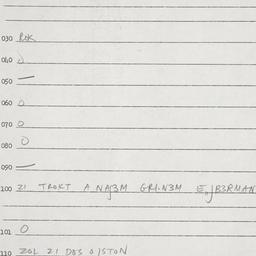 030 ROK
040 0
050 —
060 0
070 0
080 0
090 —
100 ZI TROKT A NAJ3M GRI.N3M
101 0
110 ZOL ZI DOS O/STON